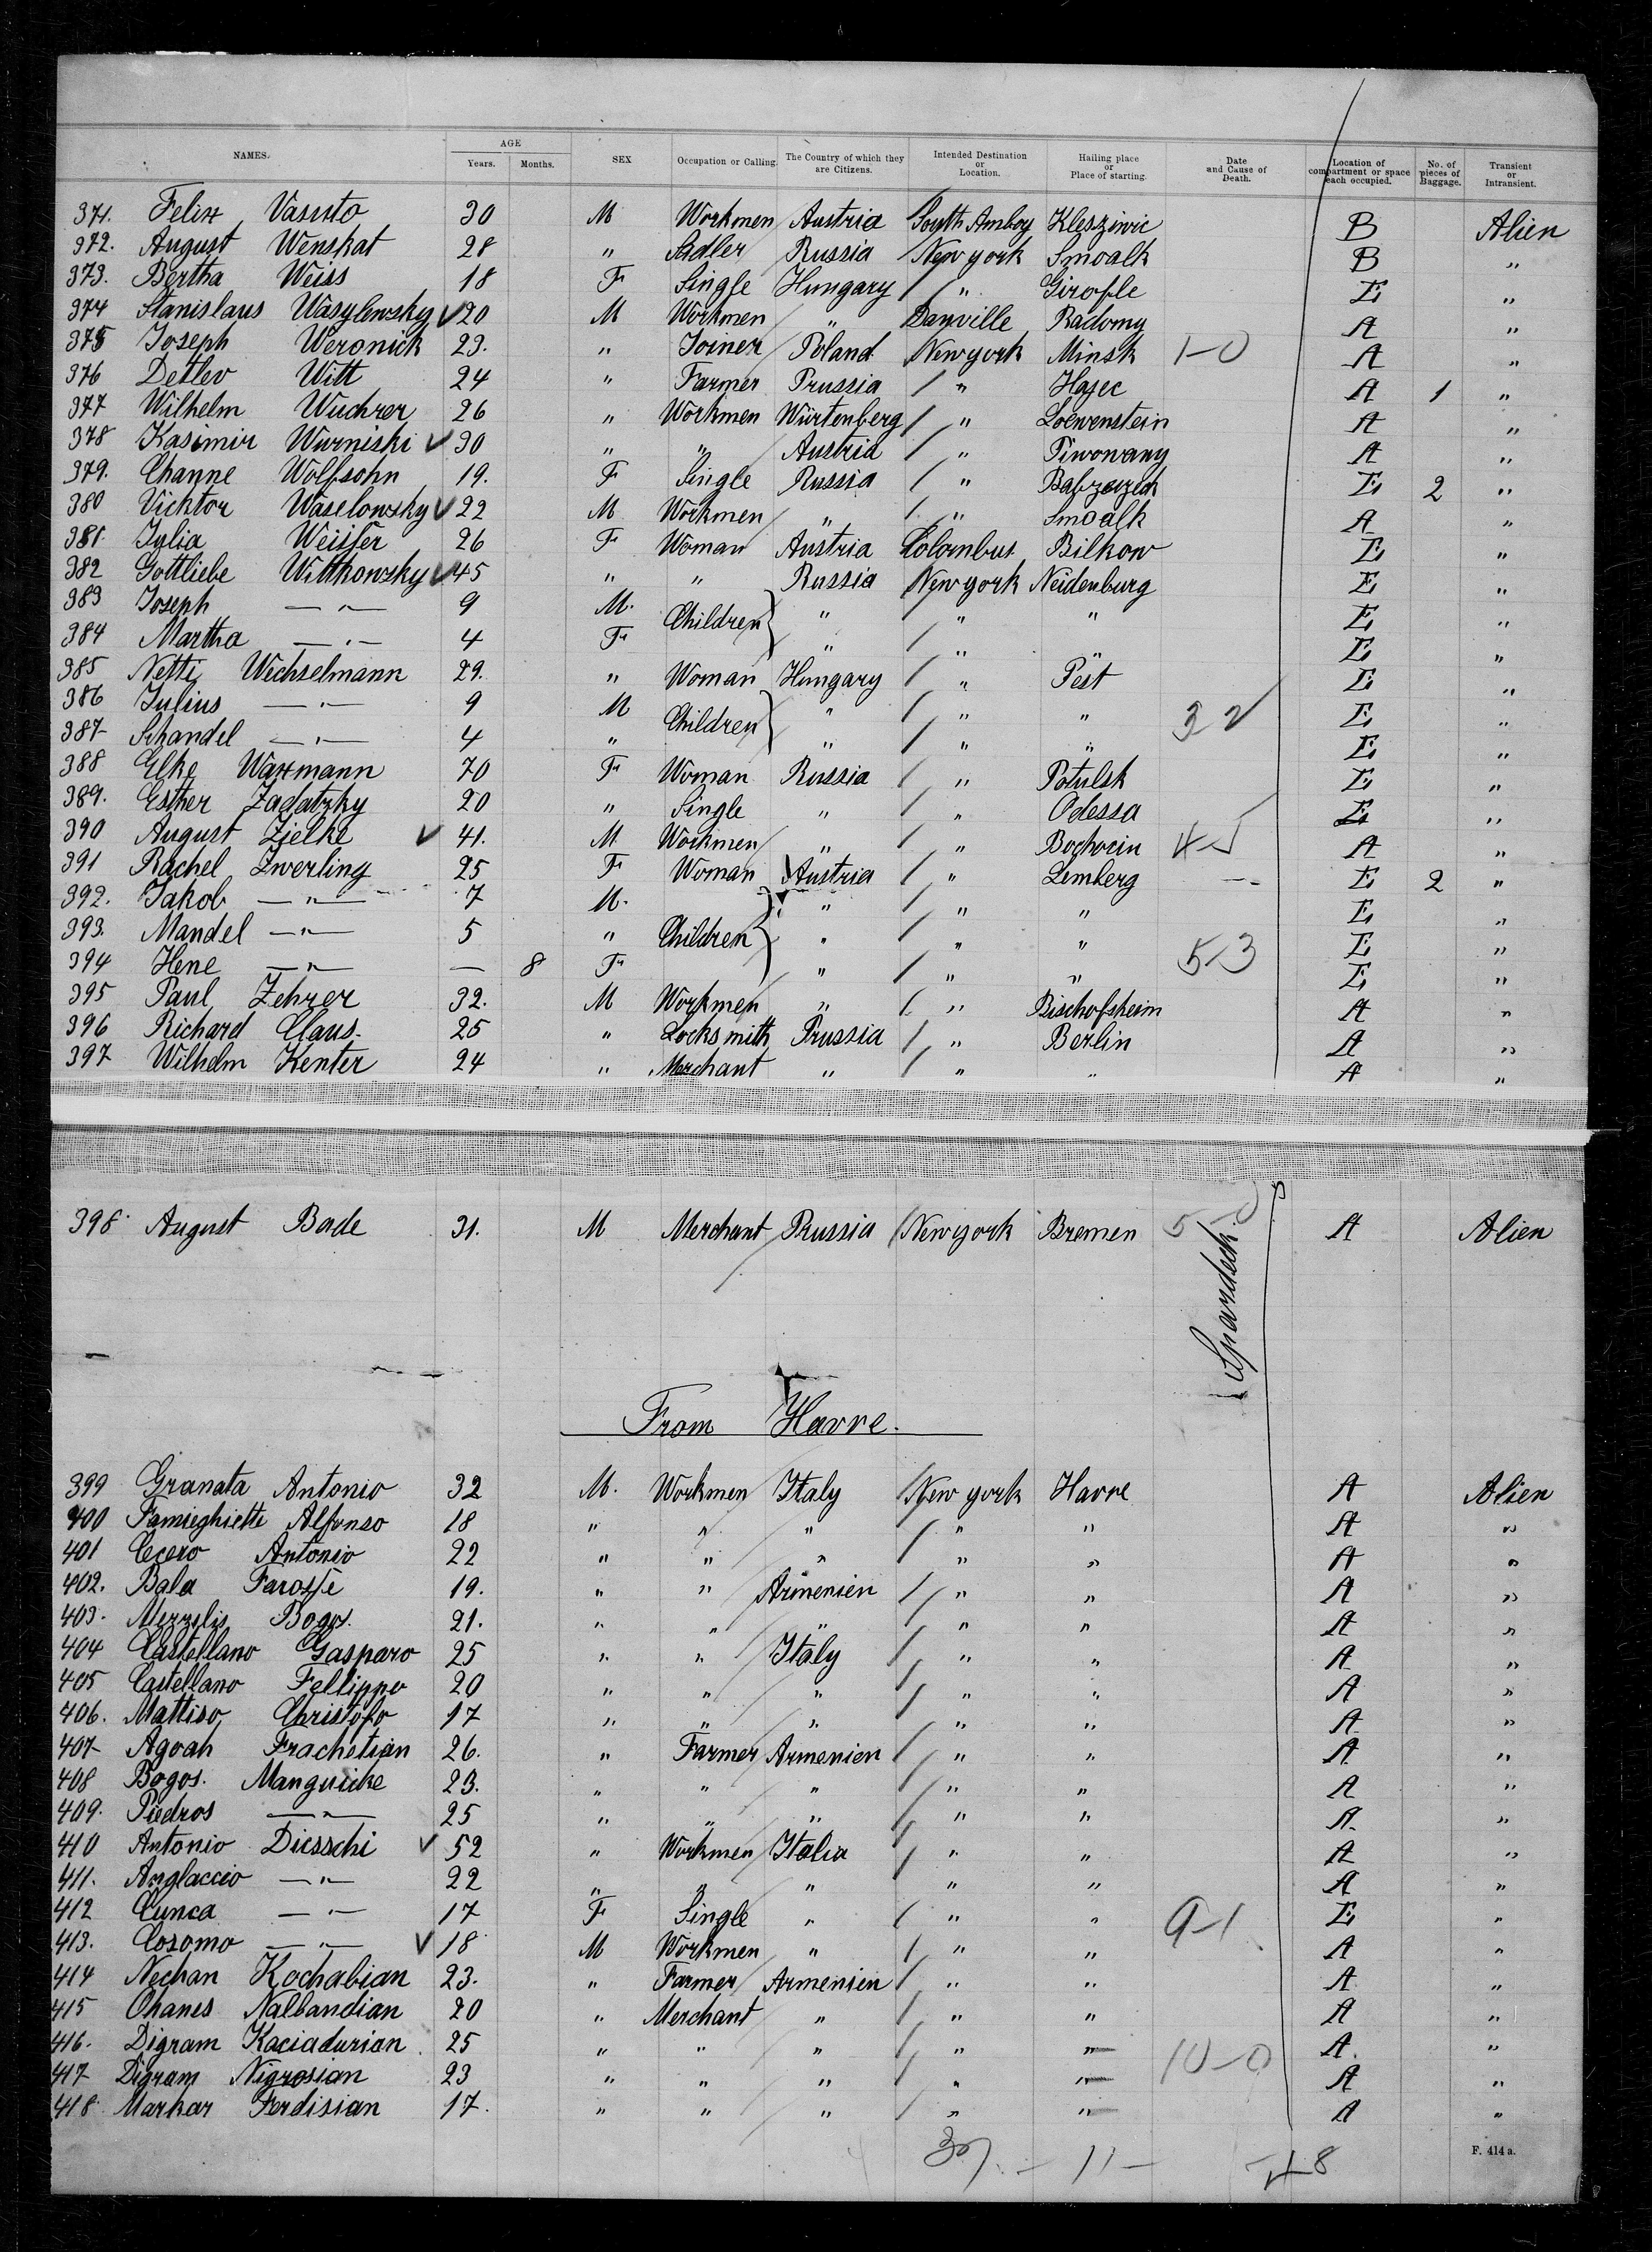 NAMES. AGE Years. Months. SEX Occupation or Calling. The Country of which they are Citizens. Intended Destination or Location. Hailing place or Place of starting. Date and Cause of Death. Location of compartment or space each occupied. No. of pieces of Baggage. Transient or Intransient.
371. Felix Vasuto 30 M Workmen Austria South Amboy Kleszivic B Alien
372. August Wenskat 28 " Sadler Russia New york Smoalk B "
373. Bertha Weiss 18 F Single Hungary / " Girofle E "
374 Stanislaus Wasylewsky √ 20 M Workmen " Danville Radomy A "
375 Joseph Weronick 23. " Joiner Poland New york Minsk 1-0 A "
376 Detlev Witt 24 " Farmer Prussia / " Hasee A 1 "
377 Wilhelm Wuchrer 26 " Workmen Würtenberg / " Loewenstein A "
378 Kasimir Wurniski √ 30 " " Austria / " Piwowany A "
379. Channe Wolfsohn 19. F Single Russia / " E 2 "
380 Vicktor Waselowsky √ 22 M Workmen " / " Smoalk A "
381. Julia Weisser 26 F Woman Austria Colombus Bilkow E "
382 Gottliebe Wittkowsky √ 45 " " Russia New york Neidenburg E "
383 Joseph — " — 9 M. Children } " " " E "
384 Martha — " — 4 F " / " " E "
385 Netti Wechselmann 29. " Woman Hungary / " Pest E "
386 Julius — " — 9 M Children } " / " " 3 2 E "
387 Schandel — " — 4 " " / " " E "
388 Elke Waxmann 70 F Woman Russia / " Potulsk E "
389. Esther Zadatzky 20 " Single " / " Odessa E "
390 August Zielke √ 41. M Workmen " / " Bochocin A "
391 Rachel Zwerling 25 F Woman Austria / " Lemberg E 2 "
392. Jakob — " — 7 M. " / " " E "
393. Mandel — " — 5 " Children } " / " " 5-3 E "
394 Hene — " — — 8 F " / " " E "
395 Paul Zehrer 32. M Workmen " / " Bischofsheim A "
396 Richard Claus. 25 " Locksmith Prussia / " Berlin A "
397 Wilhelm Kenter 24 " Merchant " / " " A "
398. August Bade 31. M Merchant Prussia / New york Bremen A Alien
Spardeck.
From Havre.
399 Granata Antonio 32 M. Workmen Italy / New york Havre A Alien
400 Famieghiette Alfonso 18 " " " / " " A "
401 Cecero Antonio 22 " " " / " " A "
402. Bala Farosse 19. " " Armenien / " " A "
403. Bogos. 21. " " " / " " A "
404 Castellano Gasparo 25 " " Italy / " " A "
405 Castellano Fellippo 20 " " " / " " A "
406. Mattiso Christofo 17 " " " / " " A "
407 Agoah Frachetian 26. " Farmer Armenien / " " A "
408 Bogos. Manguicke 23. " " " / " " A "
409. Piedros — " — 25 " " " / " " A "
410 Antonio Diesschi √ 52 " Workmen Italia / " " A "
411. Anglaccio — " — 22 " " " / " " A "
412 Cunca — " — 17 F Single " / " " 9-1 E "
413. Cosomo — " — √ 18 M Workmen " / " " A "
414 Nechan Kochabian 23. " Farmer Armenien / " " A "
415 Ohanes Nalbandian 20 " Merchant " / " " A "
416. Digram Kaciadurian 25 " " " / " " 10-0 A. "
417 Digram Nigrosian 23 " " " / " " A "
418 Markar Ferdisian 17. " " " / " " A "
F. 414 a.